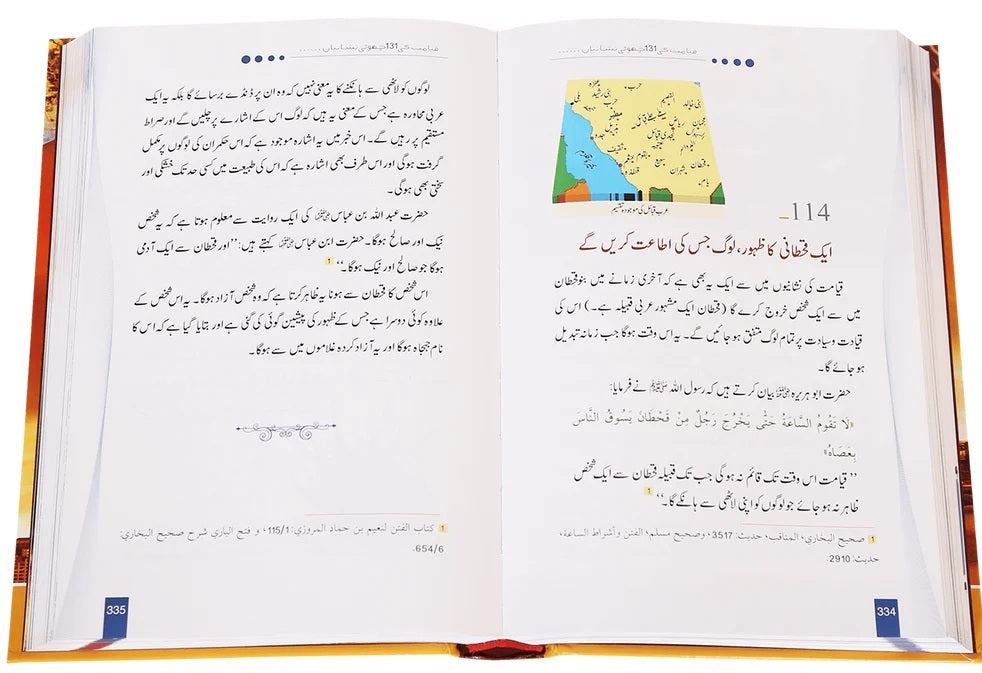 قیامت کی 131 چھوٹی نشانیاں ......
عرب قبائل کی موجودہ تقسیم
114 _
ایک قحطانی کا ظہور، لوگ جس کی اطاعت کریں گے
قیامت کی نشانیوں میں سے ایک یہ بھی ہے کہ آخری زمانے میں بنو قحطان
میں سے ایک شخص خروج کرے گا (قحطان ایک مشہور عربی قبیلہ ہے۔) اس کی
قیادت وسیادت پر تمام لوگ متفق ہو جائیں گے۔ یہ اس وقت ہوگا جب زمانہ تبدیل
ہو جائے گا۔
حضرت ابو ہریرہ رضی اللہ عنہ بیان کرتے ہیں کہ رسول اللہ ﷺ نے فرمایا:
«لَا تَقُومُ السَّاعَةُ حَتَّى يَخْرُجَ رَجُلٌ مِنْ قَحْطَانَ يَسُوقُ النَّاسَ
بِعَصَاهُ»
’’قیامت اس وقت تک قائم نہ ہوگی جب تک قبیلہ قحطان سے ایک شخص
ظاہر نہ ہو جائے جو لوگوں کو اپنی لاٹھی سے ہانکے گا۔‘‘ 1
1 صحيح البخاري، المناقب، حديث: 3517، وصحيح مسلم، الفتن وأشراط الساعة،
حديث: 2910.
334
قیامت کی 131 چھوٹی نشانیاں ......
لوگوں کو لاٹھی سے ہانکنے کا یہ معنی نہیں کہ وہ ان پر ڈنڈے برسائے گا بلکہ یہ ایک
عربی محاورہ ہے جس کے معنی یہ ہیں کہ لوگ اس کے اشارے پر چلیں گے اور صراط
مستقیم پر رہیں گے۔ اس خبر میں یہ اشارہ موجود ہے کہ اس حکمران کی لوگوں پر مکمل
گرفت ہوگی اور اس طرف بھی اشارہ ہے کہ اس کی طبیعت میں کسی حد تک خشکی اور
سختی بھی ہوگی۔
حضرت عبد اللہ بن عباس رضی اللہ عنہما کی ایک روایت سے معلوم ہوتا ہے کہ یہ شخص
نیک اور صالح ہوگا۔ حضرت ابن عباس رضی اللہ عنہما کہتے ہیں: ’’اور قحطان سے ایک آدمی
ہوگا جو صالح اور نیک ہوگا۔‘‘ 1
اس شخص کا قحطان سے ہونا یہ ظاہر کرتا ہے کہ وہ شخص آزاد ہوگا۔ یہ اس شخص کے
علاوہ کوئی دوسرا ہے جس کے ظہور کی پیشین گوئی کی گئی ہے اور بتایا گیا ہے کہ اس کا
نام جہجاہ ہوگا اور یہ آزاد کردہ غلاموں میں سے ہوگا۔
1 كتاب الفتن لنعيم بن حماد المروزي: 115/1، و فتح الباري شرح صحيح البخاري:
654/6.
335